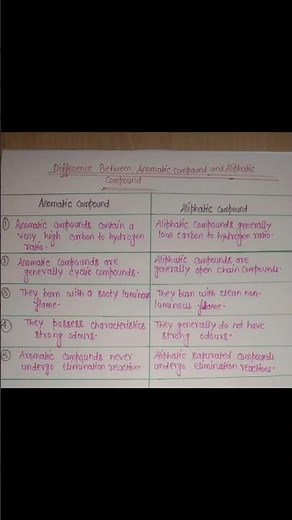 Difference Between Aromatic compound and Aliphatic
Compound
Aromatic Compound
Aliphatic Compound
① Aromatic compounds contain a
very high carbon to hydrogen
ratio.
Aliphatic Compounds generally
low carbon to hydrogen ratio.
② Aromatic Compounds are
generally cyclic compounds.
Aliphatic compounds are
generally open chain compounds.
③ They burn with a sooty luminous
flame.
They burn with clean non-
luminous flame.
④ They possess characteristics
strong odours.
They generally do not have
strong odours.
⑤ Aromatic compounds never
undergo elimination reaction.
Aliphatic saturated compounds
undergo elimination reactions.